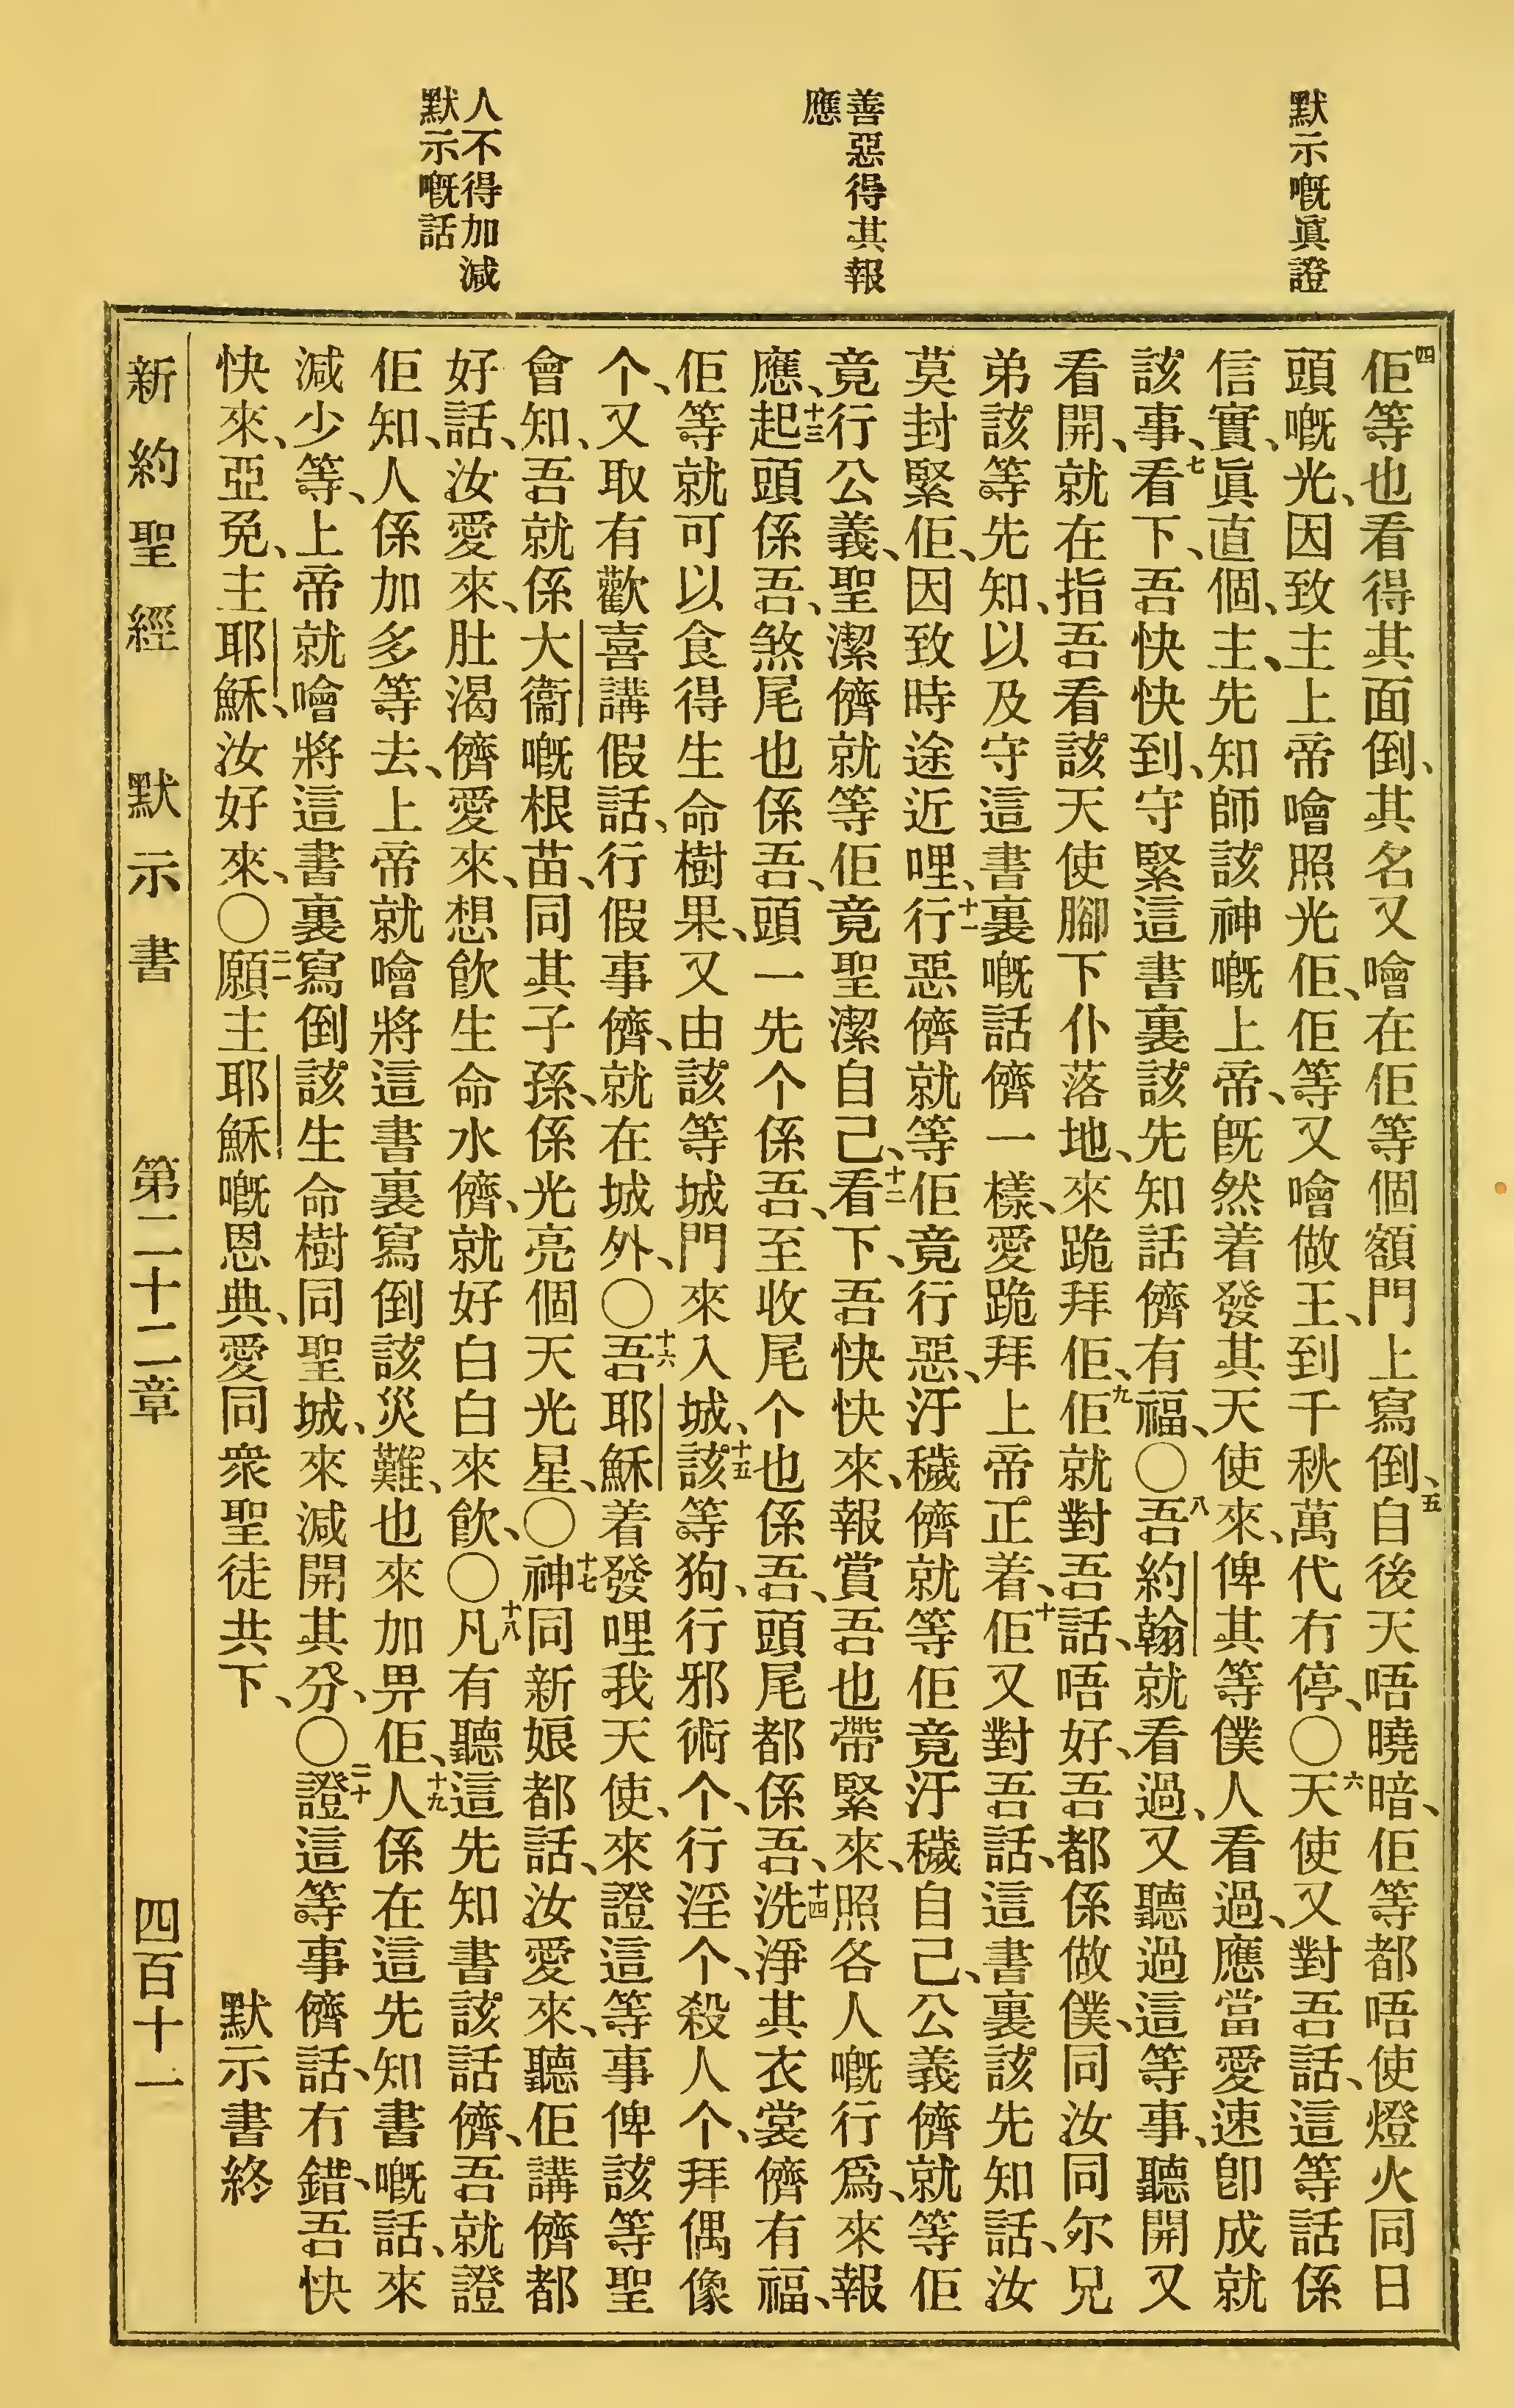 默示嘅眞證
善惡得其報
應
人不得加減
默示嘅話
四佢等也看得其面倒、其名又噲在佢等個額門上寫倒、五自後天唔曉暗、佢等都唔使燈火同日
頭嘅光、因致主上帝噲照光佢、佢等又噲做王、到千秋萬代冇停、〇六天使又對吾話、這等話係
信實、眞直個、主、先知師該神嘅上帝、旣然着發其天使來、俾其等僕人看過、應當愛速卽成就
該事、七看下、吾快快到、守緊這書裏該先知話儕有福、〇八吾約翰就看過、又聽過這等事、聽開又
看開、就在指吾看該天使腳下仆落地、來跪拜佢、九佢就對吾話、唔好、吾都係做僕、同汝同尔兄
弟該等先知、以及守這書裏嘅話儕一樣、愛跪拜上帝正着、十佢又對吾話、這書裏該先知話、汝
莫封緊佢、因致時途近哩、十一行惡儕就等佢竟行惡、汙穢儕就等佢竟汙穢自己、公義儕就等佢
竟行公義、聖潔儕就等佢竟聖潔自己、十二看下、吾快快來、報賞吾也帶緊來、照各人嘅行爲、來報
應、十三起頭係吾、煞尾也係吾、頭一先个係吾、至收尾个也係吾、頭尾都係吾、十四洗淨其衣裳儕有福、
佢等就可以食得生命樹果、又由該等城門來入城、十五該等狗、行邪術个、行淫个、殺人个、拜偶像
个、又取有歡喜講假話、行假事儕、就在城外、〇十六吾耶穌着發哩我天使、來證這等事俾該等聖
會知、吾就係大衞嘅根苗、同其子孫、係光亮個天光星、〇十七神同新娘都話、汝愛來、聽佢講儕都
好話、汝愛來、肚渴儕愛來、想飮生命水儕、就好白白來飮、〇十八凡有聽這先知書該話儕、吾就證
佢知、人係加多等去、上帝就噲將這書裏寫倒該災難、也來加畀佢、十九人係在這先知書嘅話、來
減少等、上帝就噲將這書裏寫倒該生命樹同聖城、來減開其分、〇二十證這等事儕話、冇錯、吾快
快來、亞𠒇、主耶穌、汝好來、〇二一願主耶穌嘅恩典、愛同衆聖徒共下、
默示書終
新約聖經 默示書 第二十二章 四百十一